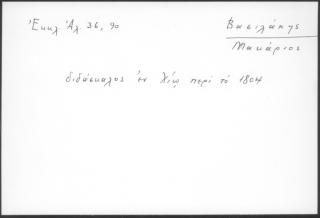 Ἐκκλ. Ἀλ. 36, 90
Βασιλάκης
Μακάριος
διδάσκαλος ἐν Χίῳ περὶ τὸ 1804